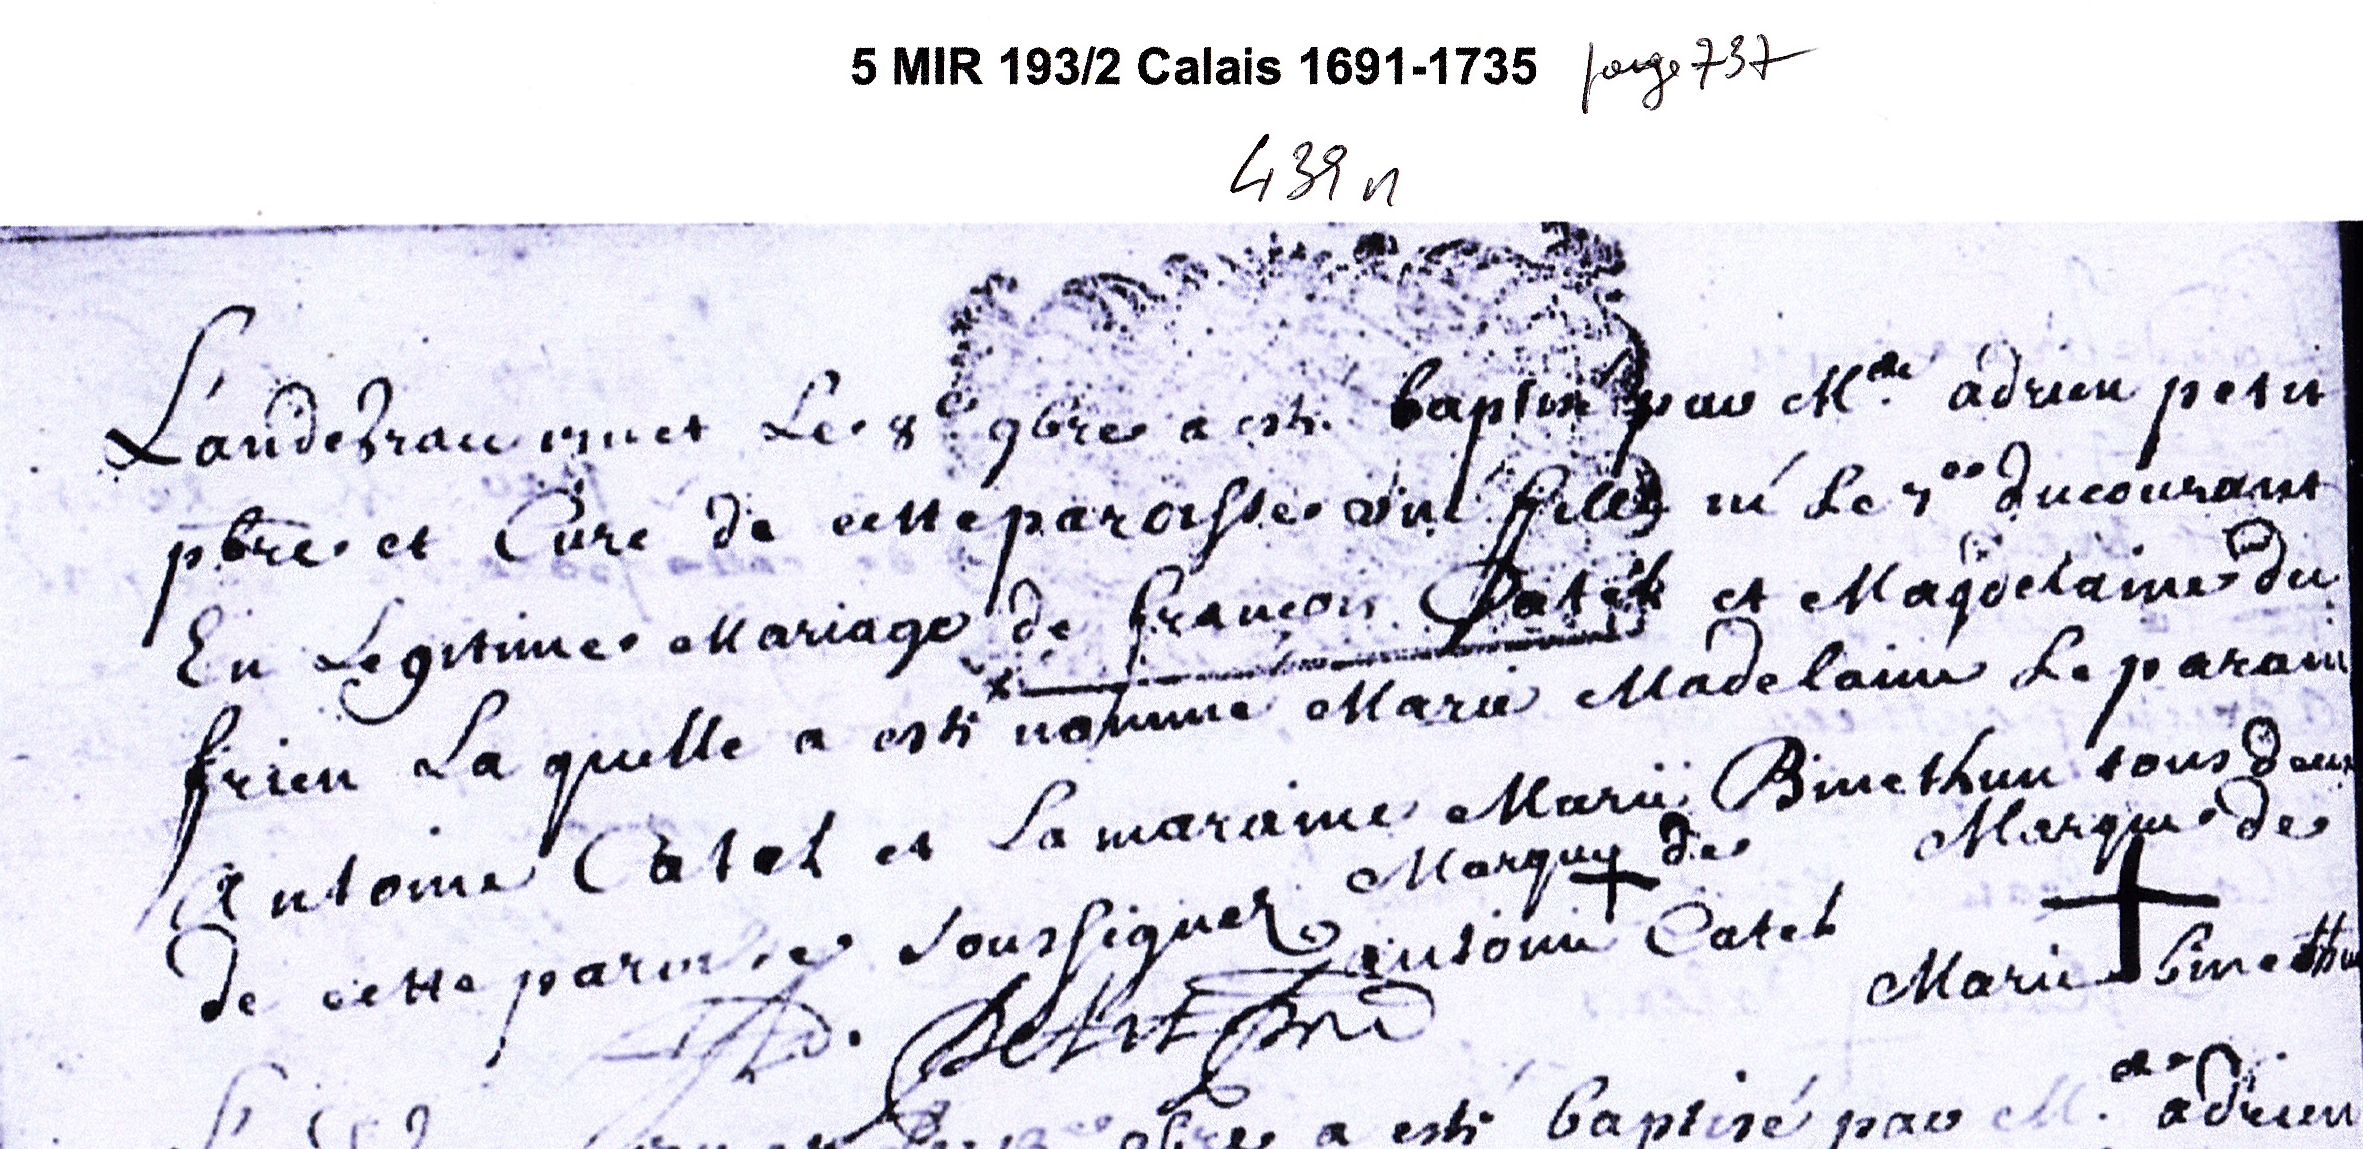 5 MIR 193/2 Calais 1691-1735 page 737
439 n
L'andegrace et Le 8e 9bre a esté baptisé par Mtre adrien petit
pbre et Curé de cette paroisse une fille né Le 7e du courant
En Legitime Mariage de françois Catel et Magdelaine du
frien La quelle a esté nommé Marie Madelaine Le parain
Antoine Catel et La maraine Marie Bimethun tous deux
de cette paroisse soussignez Marque de Marque de
antoine Catel Marie bimethun
Petit
9bre a esté baptisé par M. adrien